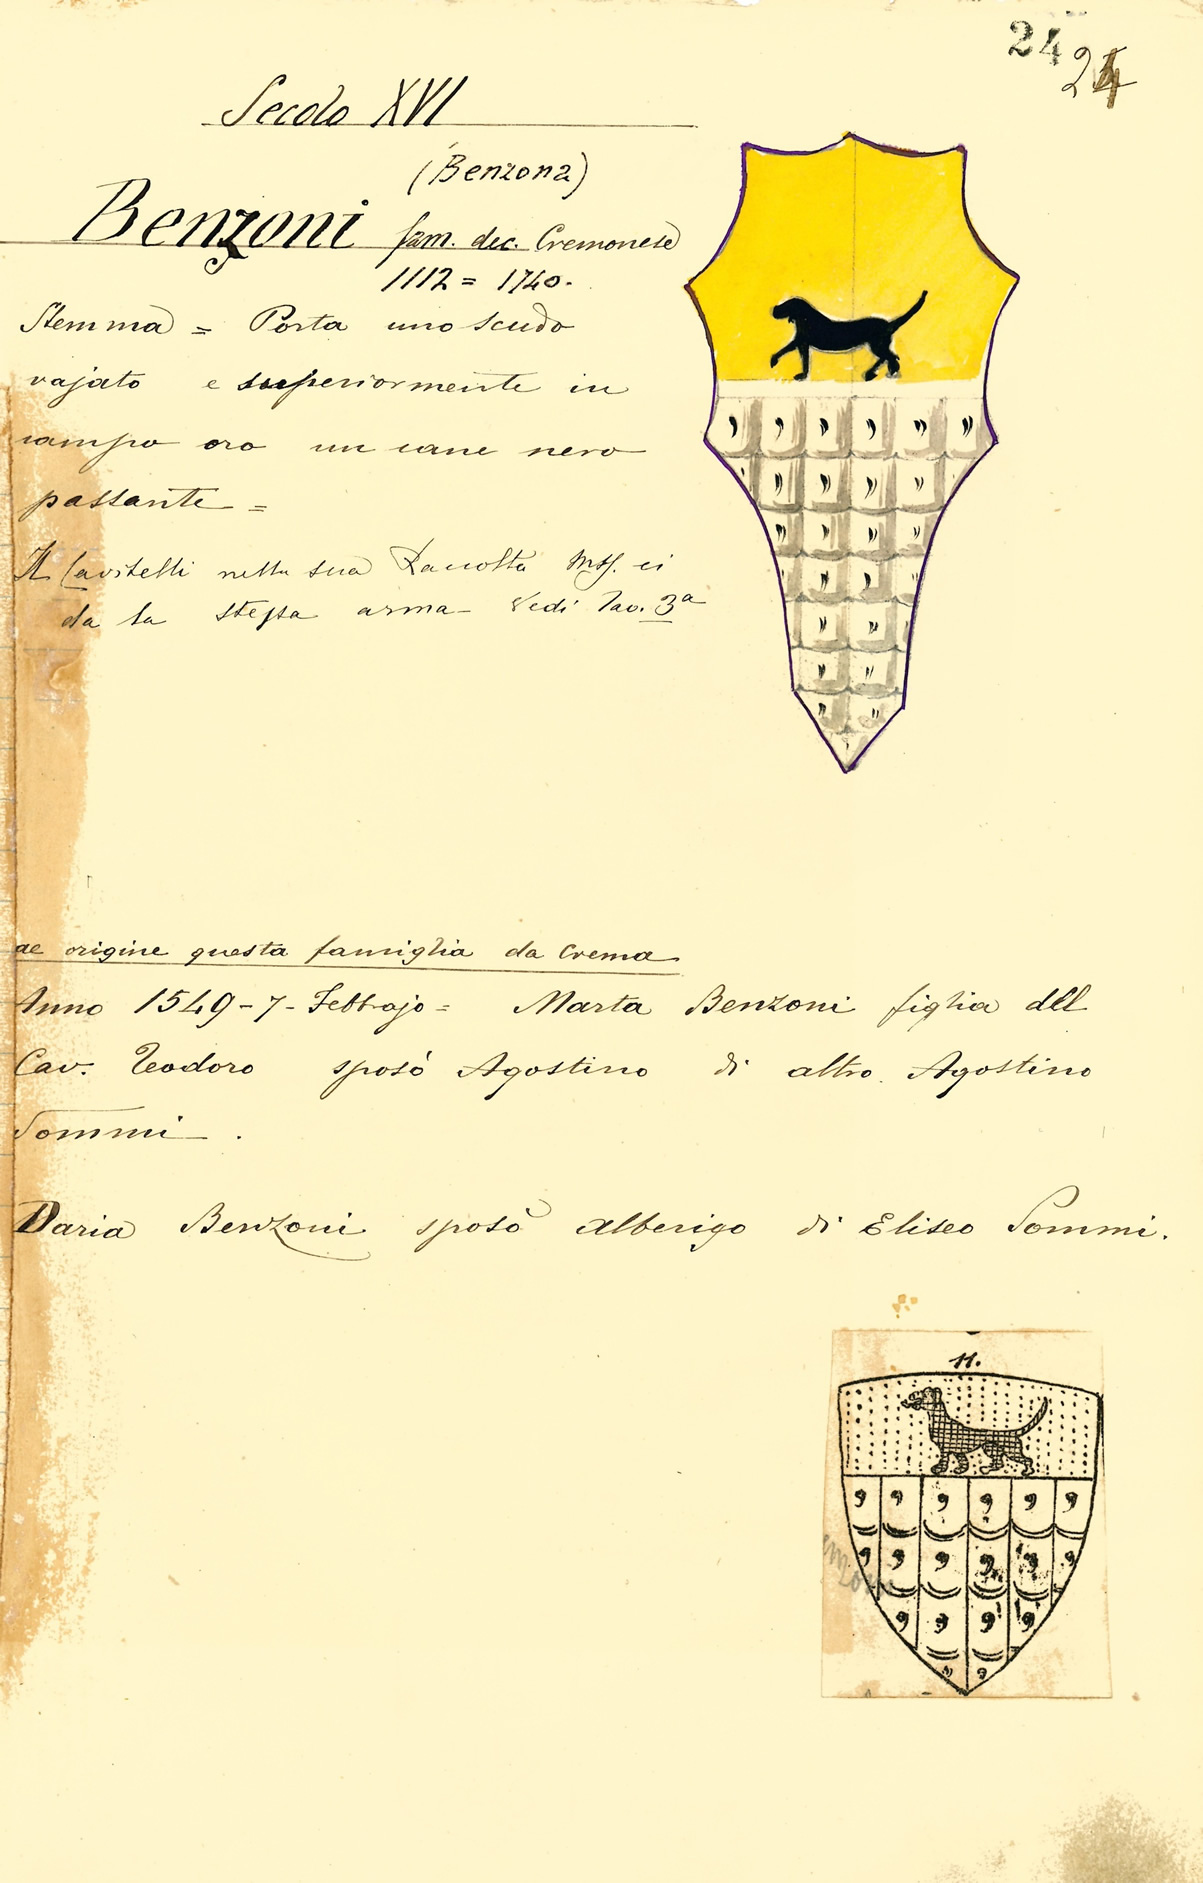 24
24
Secolo XVI
(Benzona)
Benzoni fam. dec. Cremonese
1112 = 1740.
Stemma = Porta uno scudo
vajato e superiormente in
campo oro un cane nero
passante =
Il Cavitelli nella sua Raccolta Mss. ci
da la stessa arma - Vedi Tav. 3a
ae origine questa famiglia da Crema
Anno 1549 - 7 - Febbrajo = Marta Benzoni figlia dell
Cav. Teodoro sposò Agostino di altro Agostino
Sommi.
Daria Benzoni sposò Alberigo di Eliseo Sommi.
11.